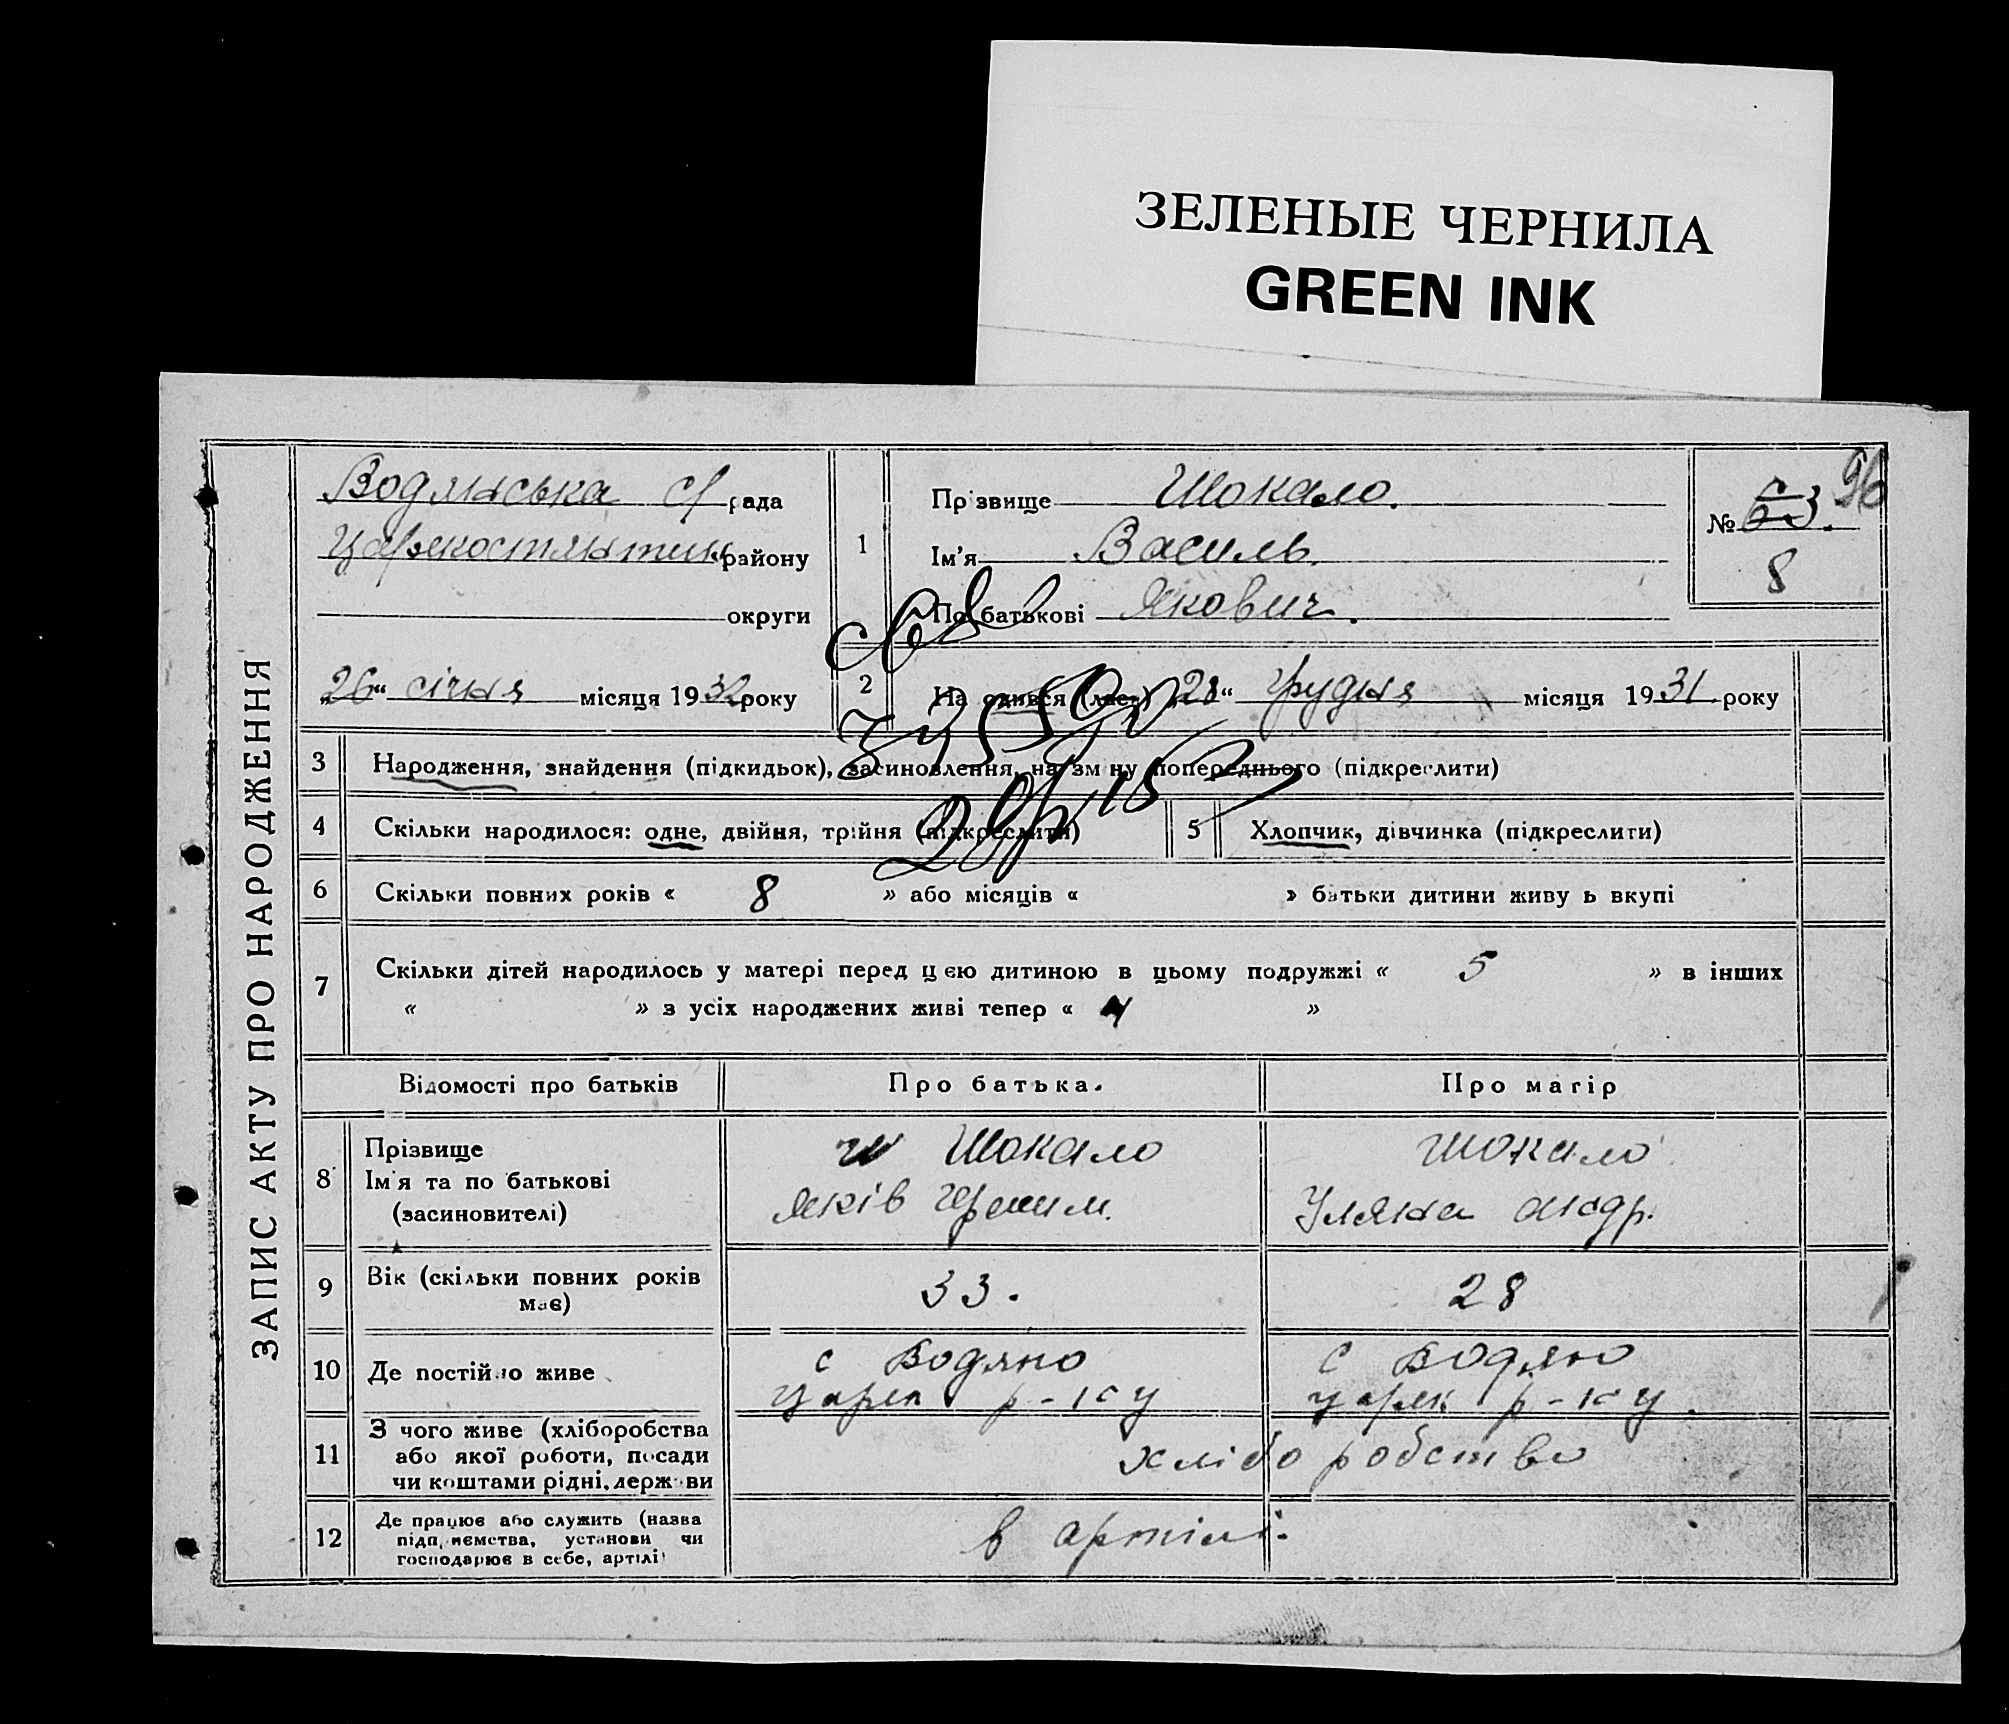 ЗЕЛЕНЫЕ ЧЕРНИЛА
GREEN INK
96
ЗАПИС АКТУ ПРО НАРОДЖЕННЯ
Водянська с/рада
району
округи
„26“ січня місяця 1932 року
1
Прізвище Шокало.
Ім’я Василь.
По батькові Якович.
№ 63.
8
2
На одився (лась) 21“ грудня місяця 1931 року
3 Народження, знайдення (підкидьок), засиновлення, на зм ну попереднього (підкреслити)
4 Скільки народилося: одне, двійня, трійня (підкреслити)
5 Хлопчик, дівчинка (підкреслити)
6 Скільки повних років « 8 » або місяців « » батьки дитини живу ь вкупі
7 Скільки дітей народилось у матері перед цею дитиною в цьому подружжі « 5 » в інших
« » з усіх народжених живі тепер « 4 »
Відомості про батьків Про батька. Про матір
8 Прізвище
Ім'я та по батькові
(засиновителі)
Шокало
Яків
Шокало
Уляна Андр.
9 Вік (скільки повних років
має)
33.
28
10 Де постійно живе
с Водяно
р-ку
с Водяно
р-ку.
11 З чого живе (хліборобства
або якої роботи, посади
чи коштами рідні, держави
хліборобство
12 Де працює або служить (назва
підприємства, установи чи
господарює в себе, артілі
в артілі.